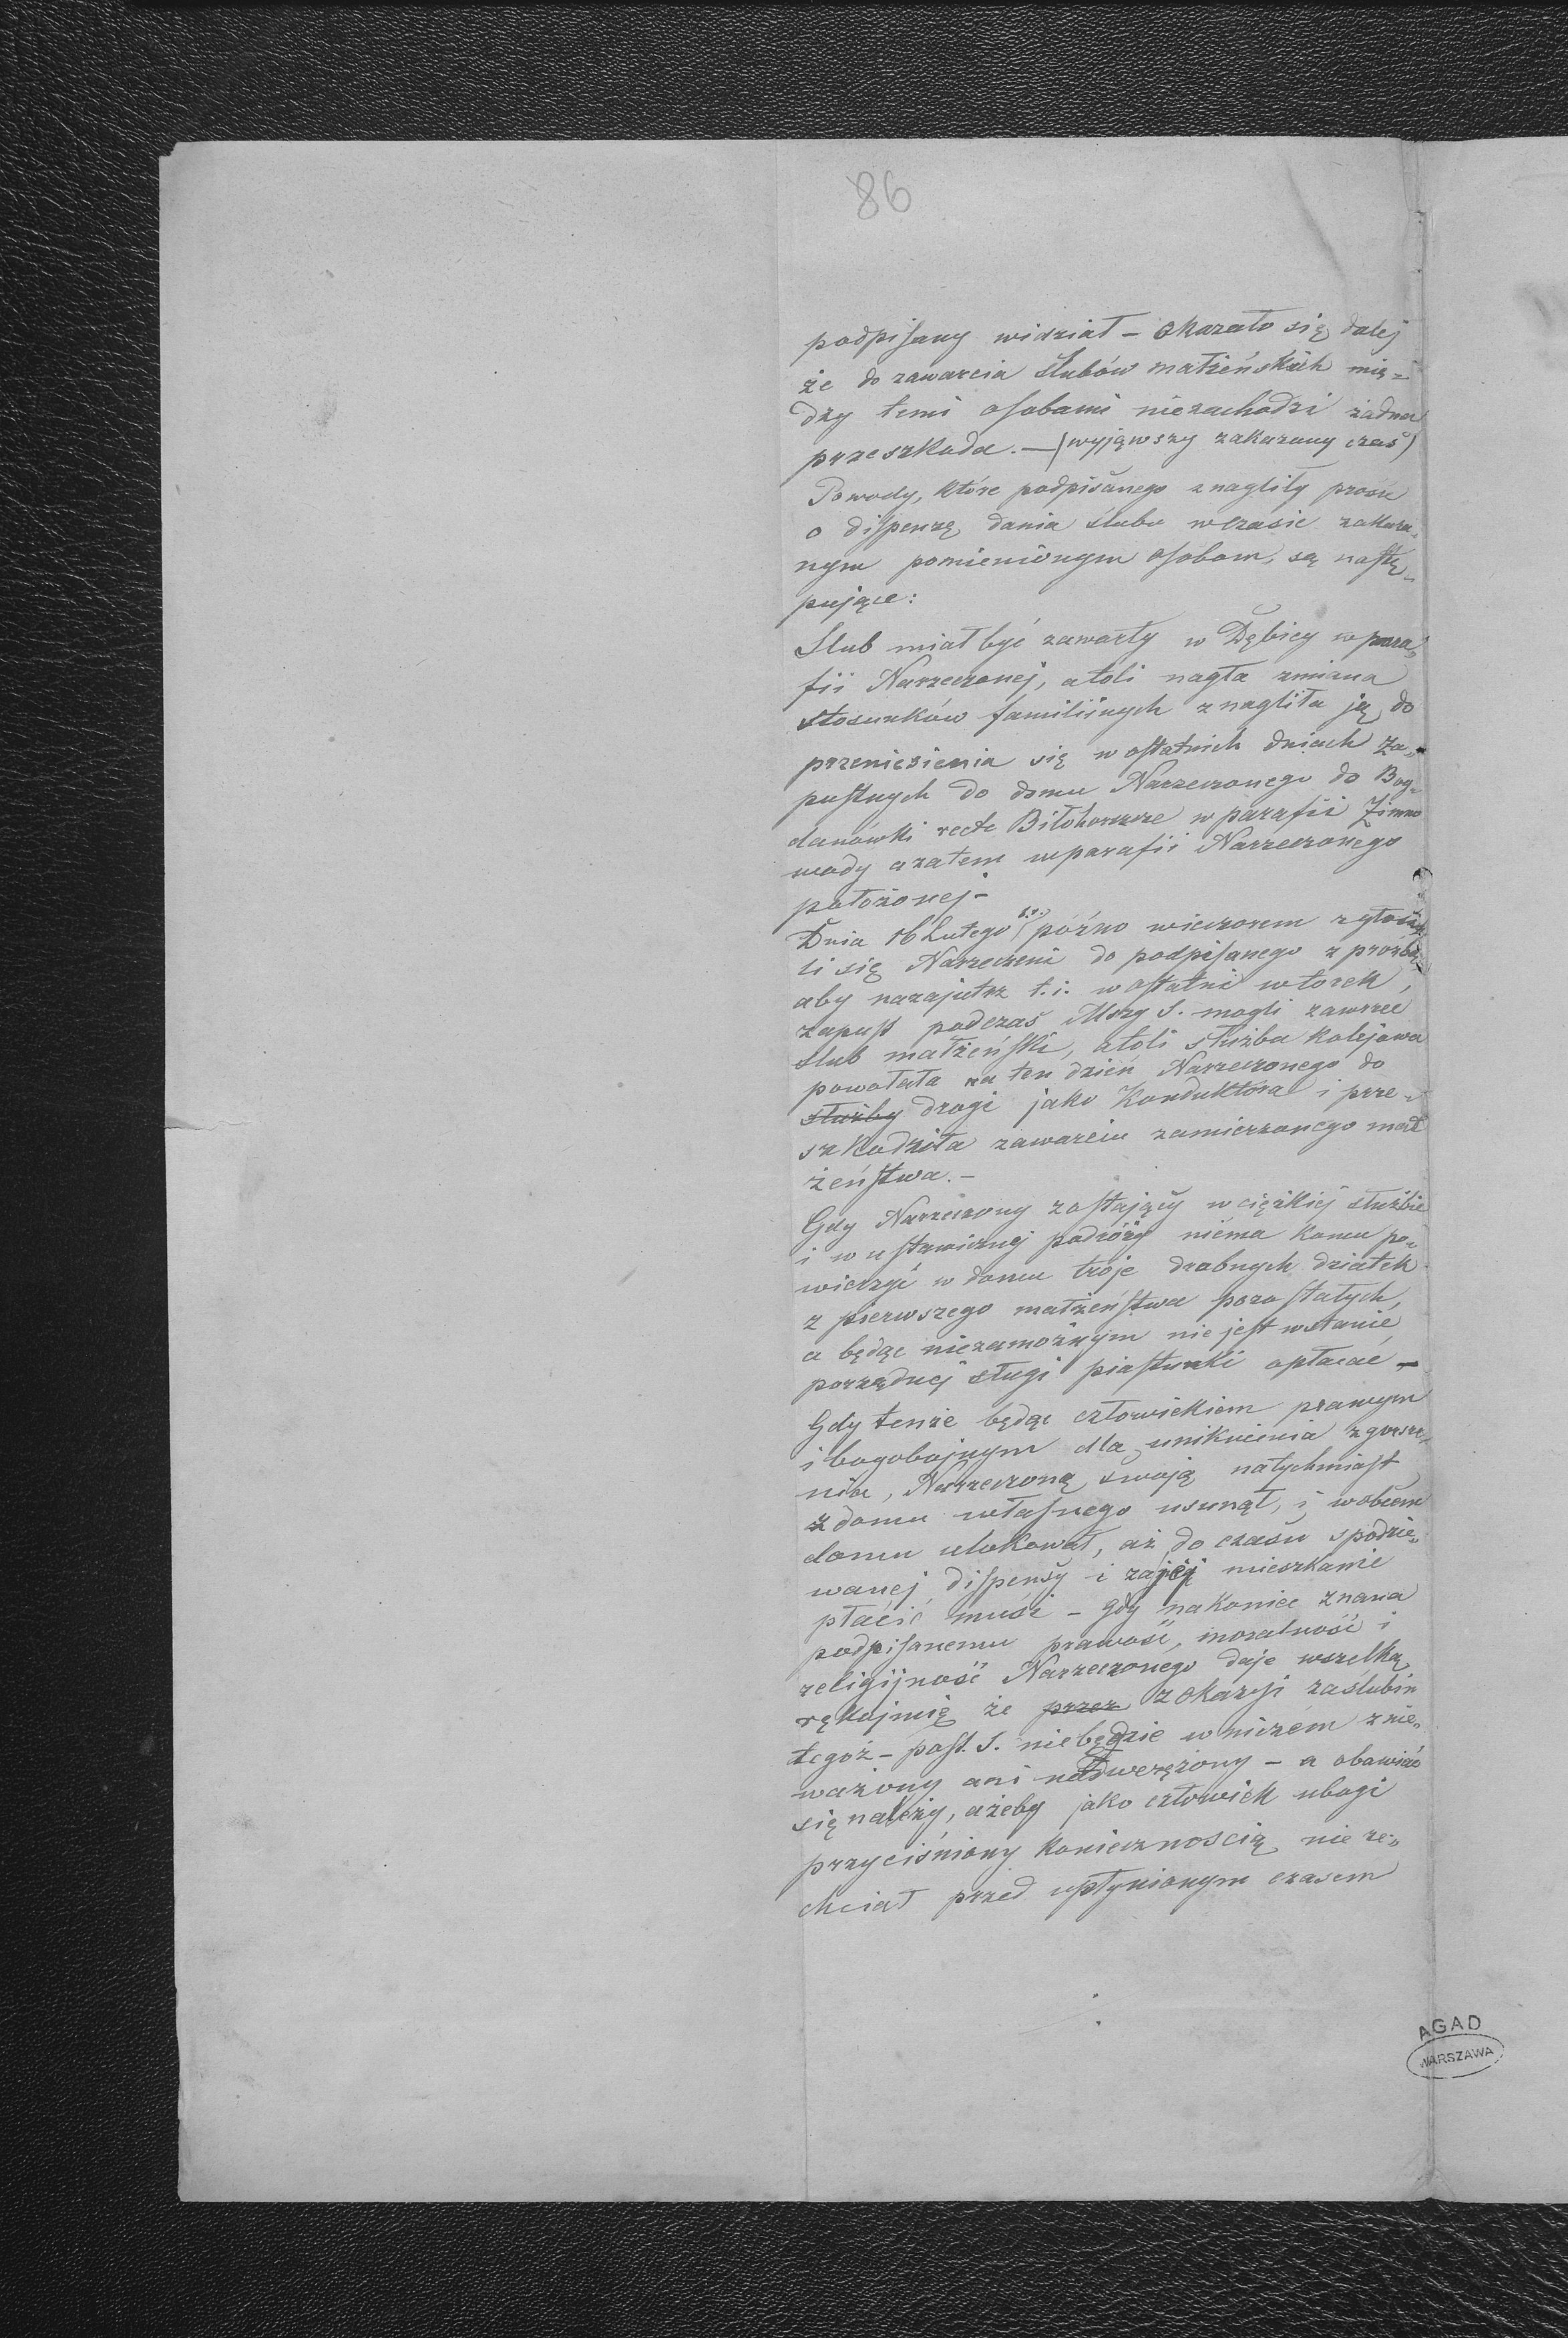 86
podpisany widział – okazało się dalej
że do zawarcia ślubów małżeńskich mię=
dzy temi osobami niezachodzi żadna
przeszkoda. – (wyjąwszy zakazany czas)
Powody, które podpisanego znagliły prosić
o dispenzę dania ślubu wczasie zakaza„
nym pomienionym osobom, są nastę„
pujące:
Slub miał być zawarty w Dębicy w para„
fii Narzeczonej, atoli nagła zmiana
stosunków familiinych znagliła ją do
przeniesienia się w ostatnich dniach za„
pustnych do domu Narzeczonego do Bog„
danówki recte Biłohorszcze w parafii Zimno
wody azatem wparafii Narzeczonego
położonej –
Dnia 16 Lutego b.r. późno wieczorem zgłosi
li się Narzeczeni do podpisanego z prozbą
aby nazajutrz t.i. w ostatni wtorek,
zapust podczas Mszy S. mogli zawrzeć
slub małżeński, atoli służba kolejowa
powołała na ten dzień Narzeczonego do
służby drogi jako Konduktora i prze„
szkodziła zawarciu zamierzonego mał
żeństwa. –
Gdy Narzeczony zostający wciężkiej służbie
i w ustawicznej podróży niema komu po„
wierzyć w domu troje drobnych dziatek
z pierwszego małżeństwa pozostałych,
a będąc niezamożnym nie jest wstanie
porządnej sługi piastunki opłacać –
Gdy tenże będąc człowiekiem prawym
i bogobojnym dla uniknienia zgorsze„
nia, Narzeczoną swoją natychmiast
z domu własnego usunął, i wobcem
domu ulokował, aż do czasu spodzie„
wanej dispensy i zajej mieszkanie
płacić musi – gdy nakoniec znana
podpisanemu prawość, moralność i
religijność Narzeczonego daje wszelką
rękojmię że przez zokazyi zaślubin
tegoż – post. S. niebędzie wniczem znie„
ważony ani nadwerężony – a obawiać
się należy, ażeby jako człowiek ubogi
przyciśniony koniecznoscią nie ze„
chciał przed upłynionym czasem
AGAD
WARSZAWA